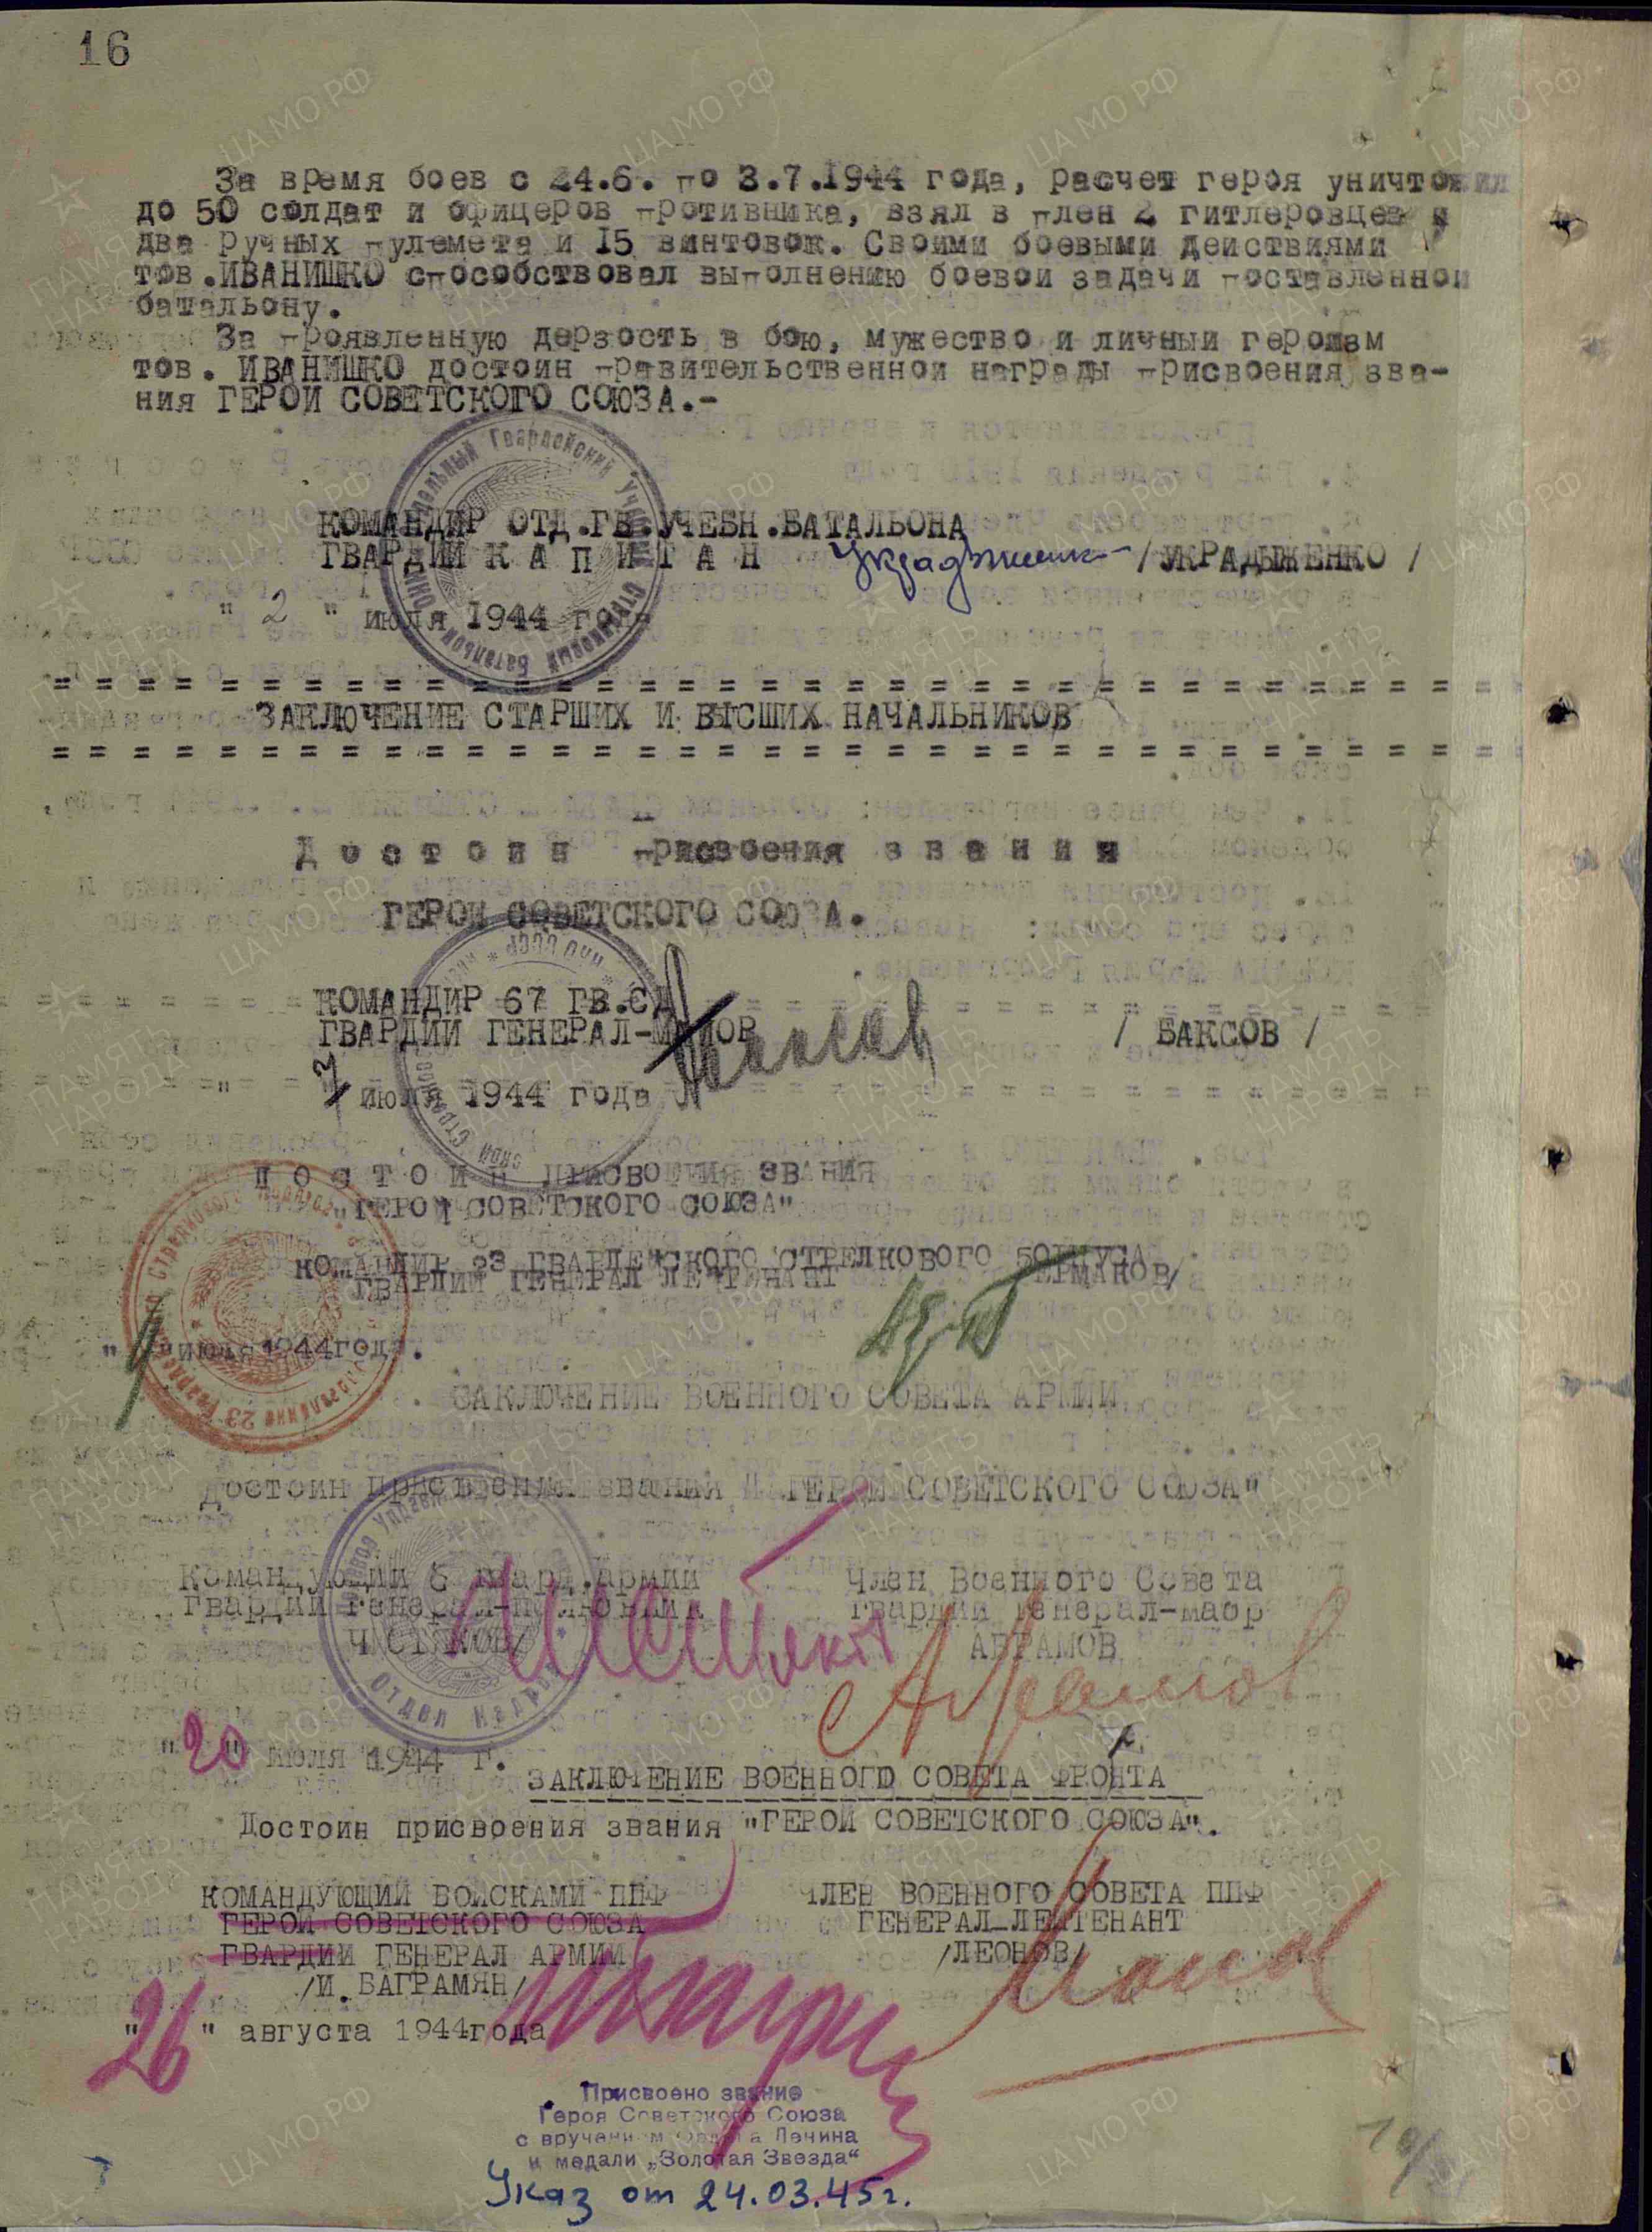 16
За время боев с 24.6. по 3.7.1944 года, расчет героя уничтожил
до 50 солдат и офицеров противника, взял в плен 2 гитлеровцев и
два ручных пулемета и 15 винтовок. Своими боевыми действиями
тов.ИВАНИШКО способствовал выполнению боевой задачи поставленной
батальону.
За проявленную дерзость в бою, мужество и личный героизм
тов. ИВАНИШКО достоин правительственной награды присвоения зва-
ния ГЕРОЙ СОВЕТСКОГО СОЮЗА.-
КОМАНДИР ОТД.ГВ.УЧЕБН.БАТАЛЬОНА
ГВАРДИИ К А П И Т А Н /УКРАДЫЖЕНКО/
" 2 " июля 1944 года
ЗАКЛЮЧЕНИЕ СТАРШИХ И ВЫСШИХ НАЧАЛЬНИКОВ
Д о с т о и н присвоения з в а н и я
ГЕРОЙ СОВЕТСКОГО СОЮЗА.
КОМАНДИР 67 ГВ.СД
ГВАРДИИ ГЕНЕРАЛ-МАИОР / БАКСОВ /
" июля 1944 года
Д О С Т О И Н ПРИСВОЕНИЯ ЗВАНИЯ
"ГЕРОЙ СОВЕТСКОГО СОЮЗА"
КОМАНДИР 23 ГВАРДЕЙСКОГО СТРЕЛКОВОГО КОРПУСА
ГВАРДИИ ГЕНЕРАЛ ЛЕЙТЕНАНТ ЕРМАКОВ/
" " июля 1944года.
ЗАКЛЮЧЕНИЕ ВОЕННОГО СОВЕТА АРМИИ
Достоин присвоения звания "ГЕРОЙ СОВЕТСКОГО СОЮЗА"
Командующий 6 гвард.армии Член Военного Совета
Гвардии генерал-полковник гвардии генерал-маор
ЧИСТЯКОВ/ АБРАМОВ
"20" июля 1944 г.
ЗАКЛЮЧЕНИЕ ВОЕННОГО СОВЕТА ФРОНТА
Достоин присвоения звания "ГЕРОЙ СОВЕТСКОГО СОЮЗА".
КОМАНДУЮЩИЙ ВОЙСКАМИ ППФ ЧЛЕН ВОЕННОГО СОВЕТА ППФ
ГЕРОЙ СОВЕТСКОГО СОЮЗА ГЕНЕРАЛ-ЛЕЙТЕНАНТ
ГВАРДИИ ГЕНЕРАЛ АРМИИ /ЛЕОНОВ/
/И. БАГРАМЯН/
"26" августа 1944года
Присвоено звание
Героя Советского Союза
с вручением Ордена Ленина
и медали „Золотая Звезда“
Указ от 24.03.45г.